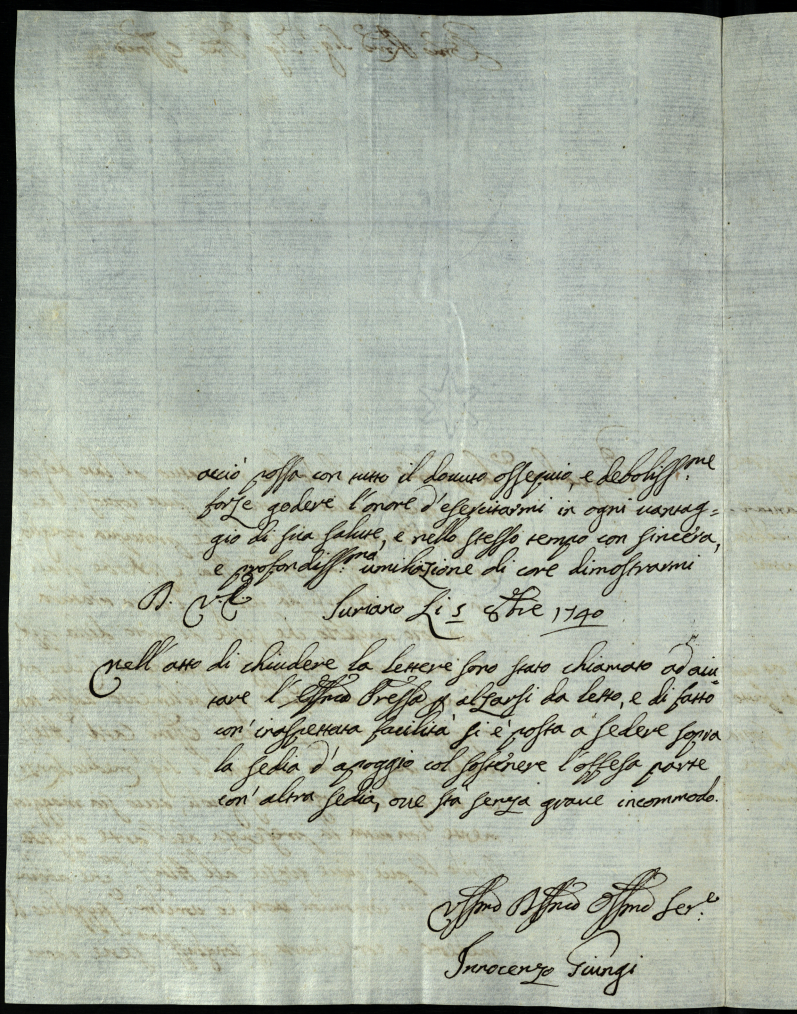 acciò possa con tutto il douuto ossequio, e deboliss.me
forze godere l'onore d'esercitarmi in ogni uantag=
gio di sua salute, e nello stesso tempo con sincera,
e profondiss.ma umiliazione di core dimostrarmi
D. V. E.
Suriano Li 5 8bre 1740
nell'atto di chiudere la lettere sono stato chiamato ad aiu=
tare l' per alzarsi da letto, e di fatto
con' inaspettata facilità si è posta a sedere sopra
la sedia d'apoggio col sostenere l'offesa parte
con' altra sedia, oue stà senza graue incommodo.
Ser.e
Innocenzo Giungi